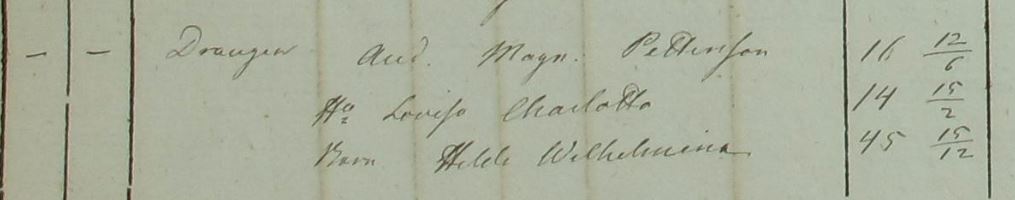 — — Drangen And. Magn. Petterson 16 12/6
Hu Lovisa Charlotta 14 15/2
Barn Hilda Wilhelmina 45 15/12